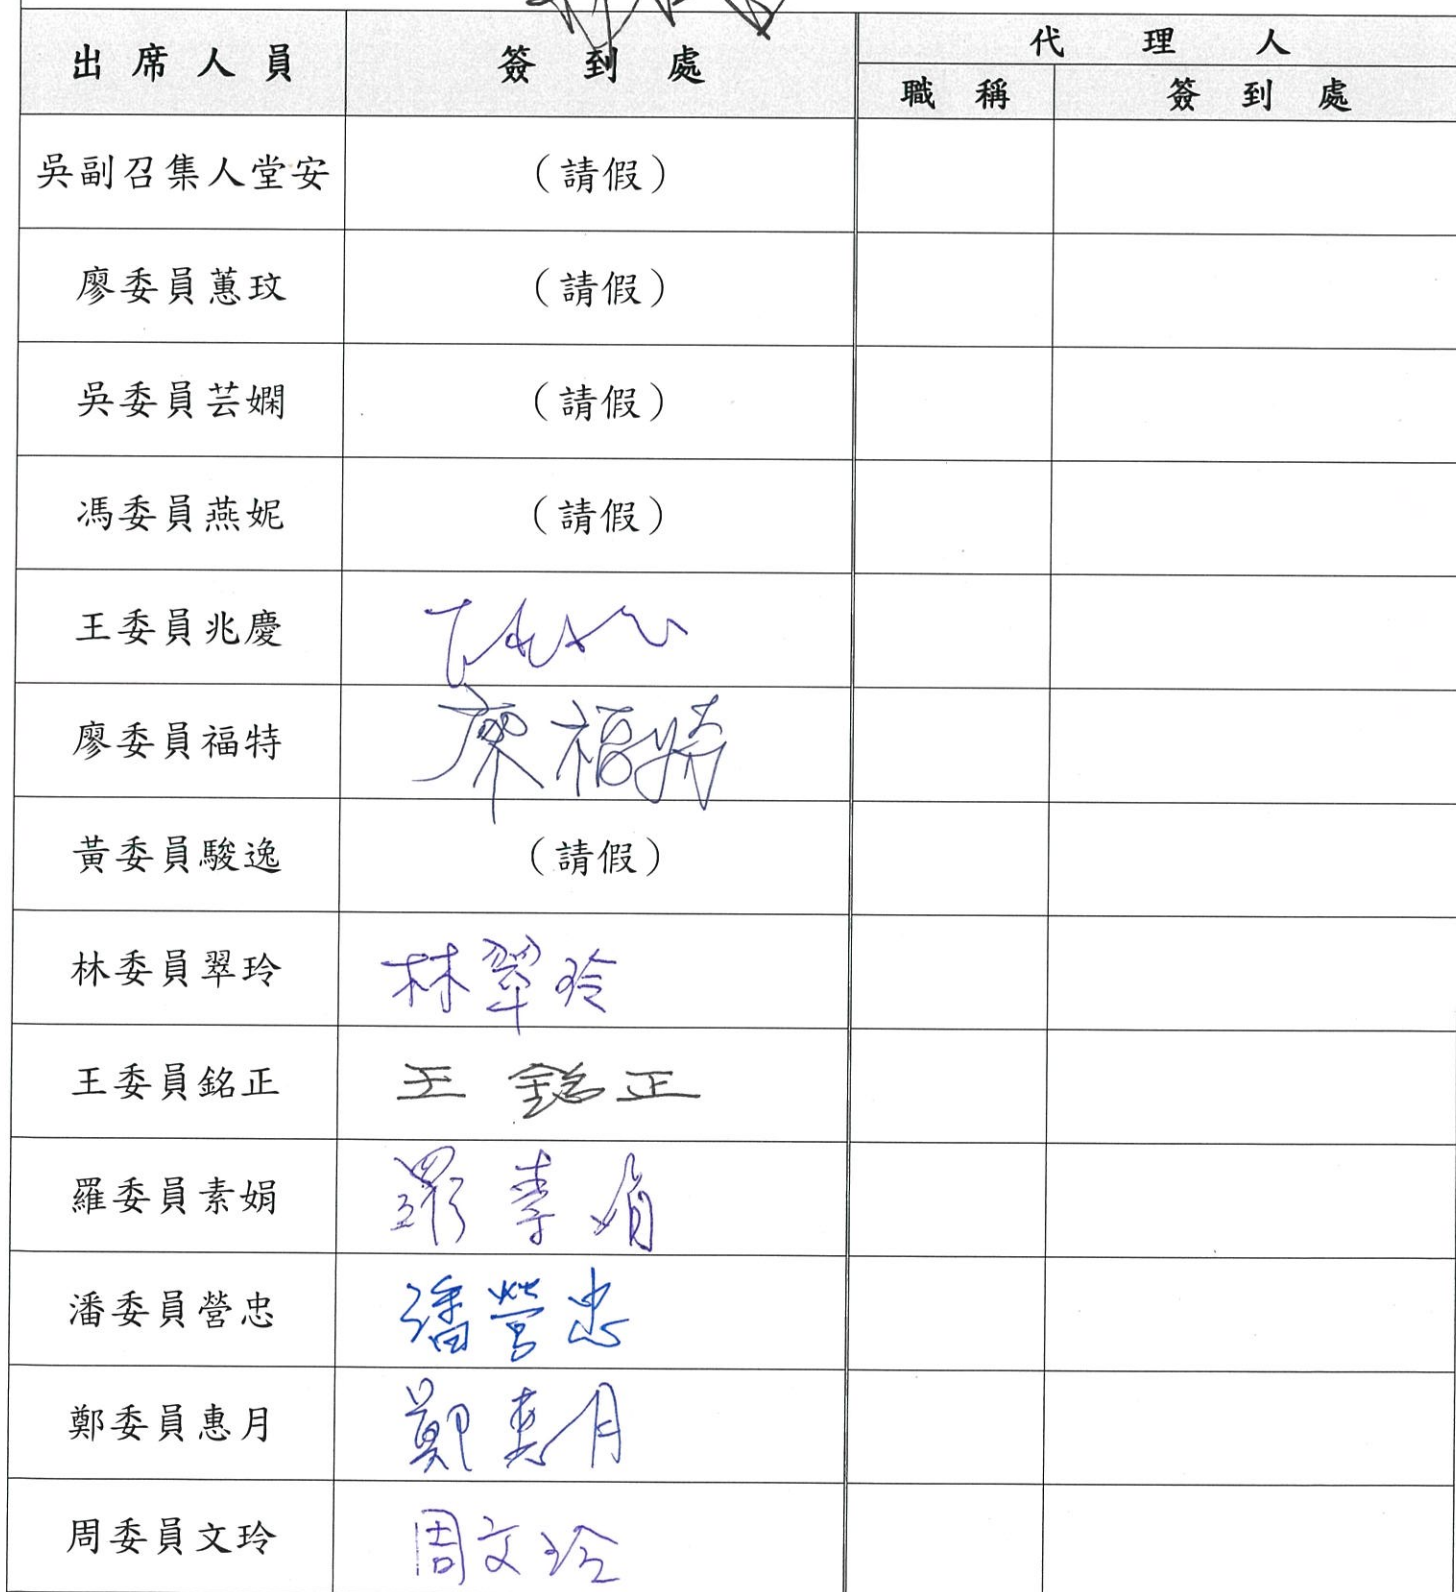 出席人員 簽到處 代理人
職稱 簽到處
吳副召集人堂安 （請假）
廖委員蕙玟 （請假）
吳委員芸嫻 （請假）
馮委員燕妮 （請假）
王委員兆慶
廖委員福特 廖福特
黃委員駿逸 （請假）
林委員翠玲 林翠玲
王委員銘正 王銘正
羅委員素娟 羅素娟
潘委員營忠 潘營忠
鄭委員惠月 鄭惠月
周委員文玲 周文玲